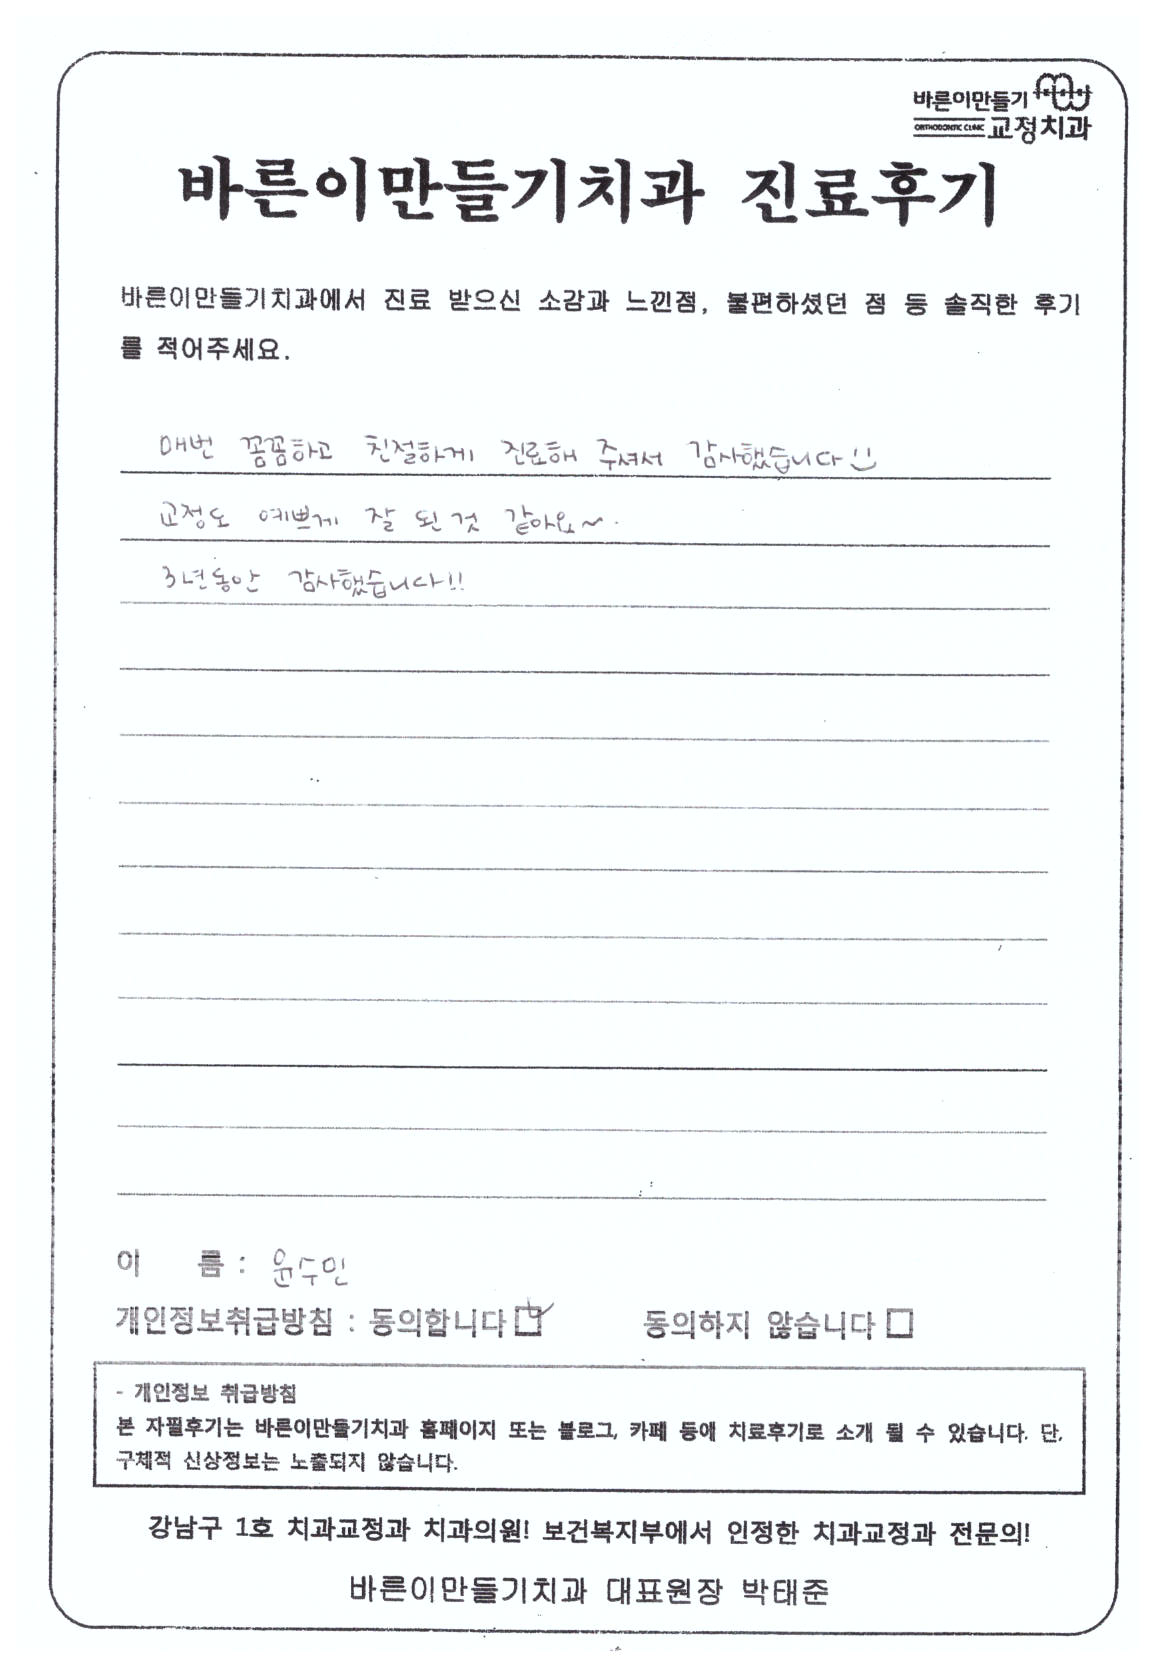 바른이만들기
ORTHODONTIC CLINIC 교정치과
바른이만들기치과 진료후기
바른이만들기치과에서 진료 받으신 소감과 느낀점, 불편하셨던 점 등 솔직한 후기
를 적어주세요.
매번 꼼꼼하고 친절하게 진료해 주셔서 감사했습니다!!
교정도 예쁘게 잘 된 것 같아요~.
3년동안 감사했습니다!!
이 름 : 윤수민
개인정보취급방침 : 동의합니다 동의하지 않습니다
- 개인정보 취급방침
본 자필후기는 바른이만들기치과 홈페이지 또는 블로그, 카페 등에 치료후기로 소개 될 수 있습니다. 단,
구체적 신상정보는 노출되지 않습니다.
강남구 1호 치과교정과 치과의원! 보건복지부에서 인정한 치과교정과 전문의!
바른이만들기치과 대표원장 박태준